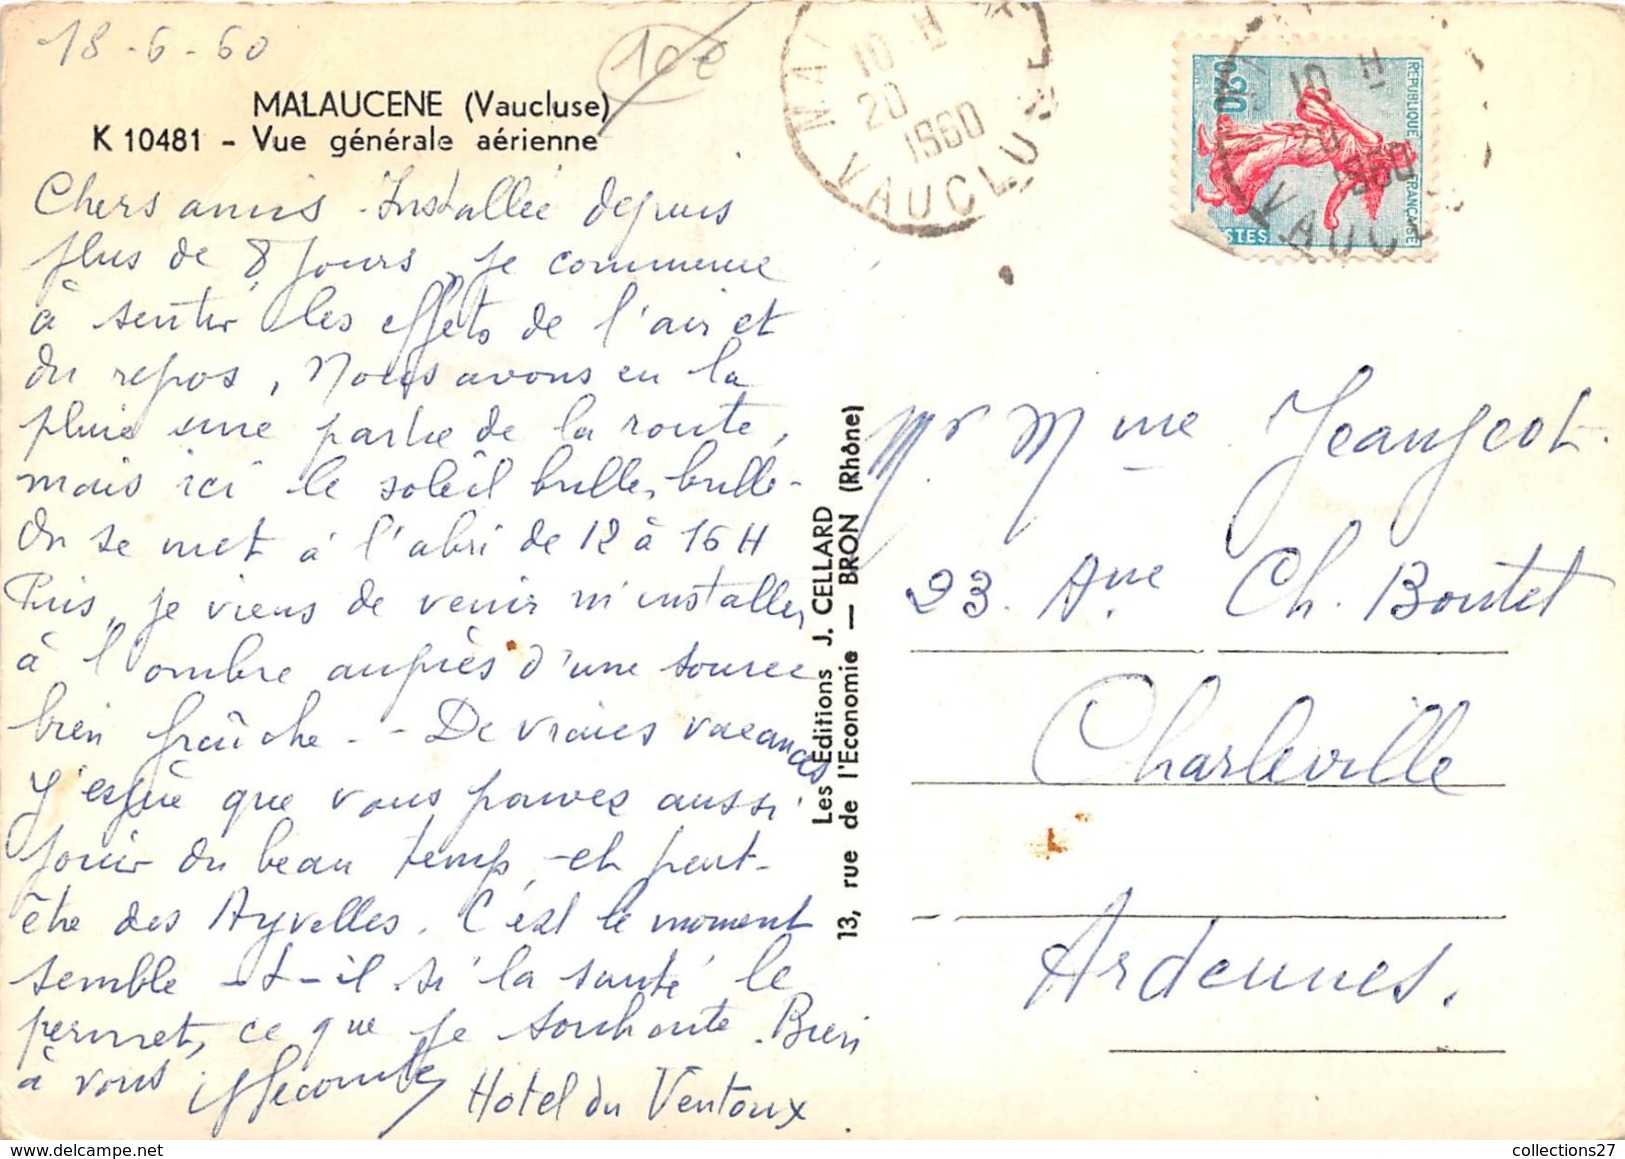 18-6-60
10€
MALAUCENE (Vaucluse)
K 10481 - Vue générale aérienne
Chers amis - Installée depuis
plus de 8 jours, je commence
à sentir les effets de l'air et
du repos, Nous avons eu la
pluie une partie de la route,
mais ici le soleil brille, brille -
On se met à l'abri de 12 à 16 H
Puis, je viens de venir m'installer
à l'ombre auprès d'une source
bien fraîche - - De vraies vacances
J'espère que vous pouvez aussi
jouir du beau temps, et peut-
être des Ayvelles. C'est le moment
semble-t-il si la santé le
permet, ce que je souhaite. Bien
à vous
Hotel du Ventoux
Les Editions J. CELLARD
13, rue de l'Economie — BRON (Rhône)
10 H
20
1960
VAUCLUSE
REPUBLIQUE FRANÇAISE
0,20
STES
10 H
20
1960
VAUCL
Mr Mme Jeangeot.
23. Ave Ch. Boutet
Charleville
Ardennes.
collections27